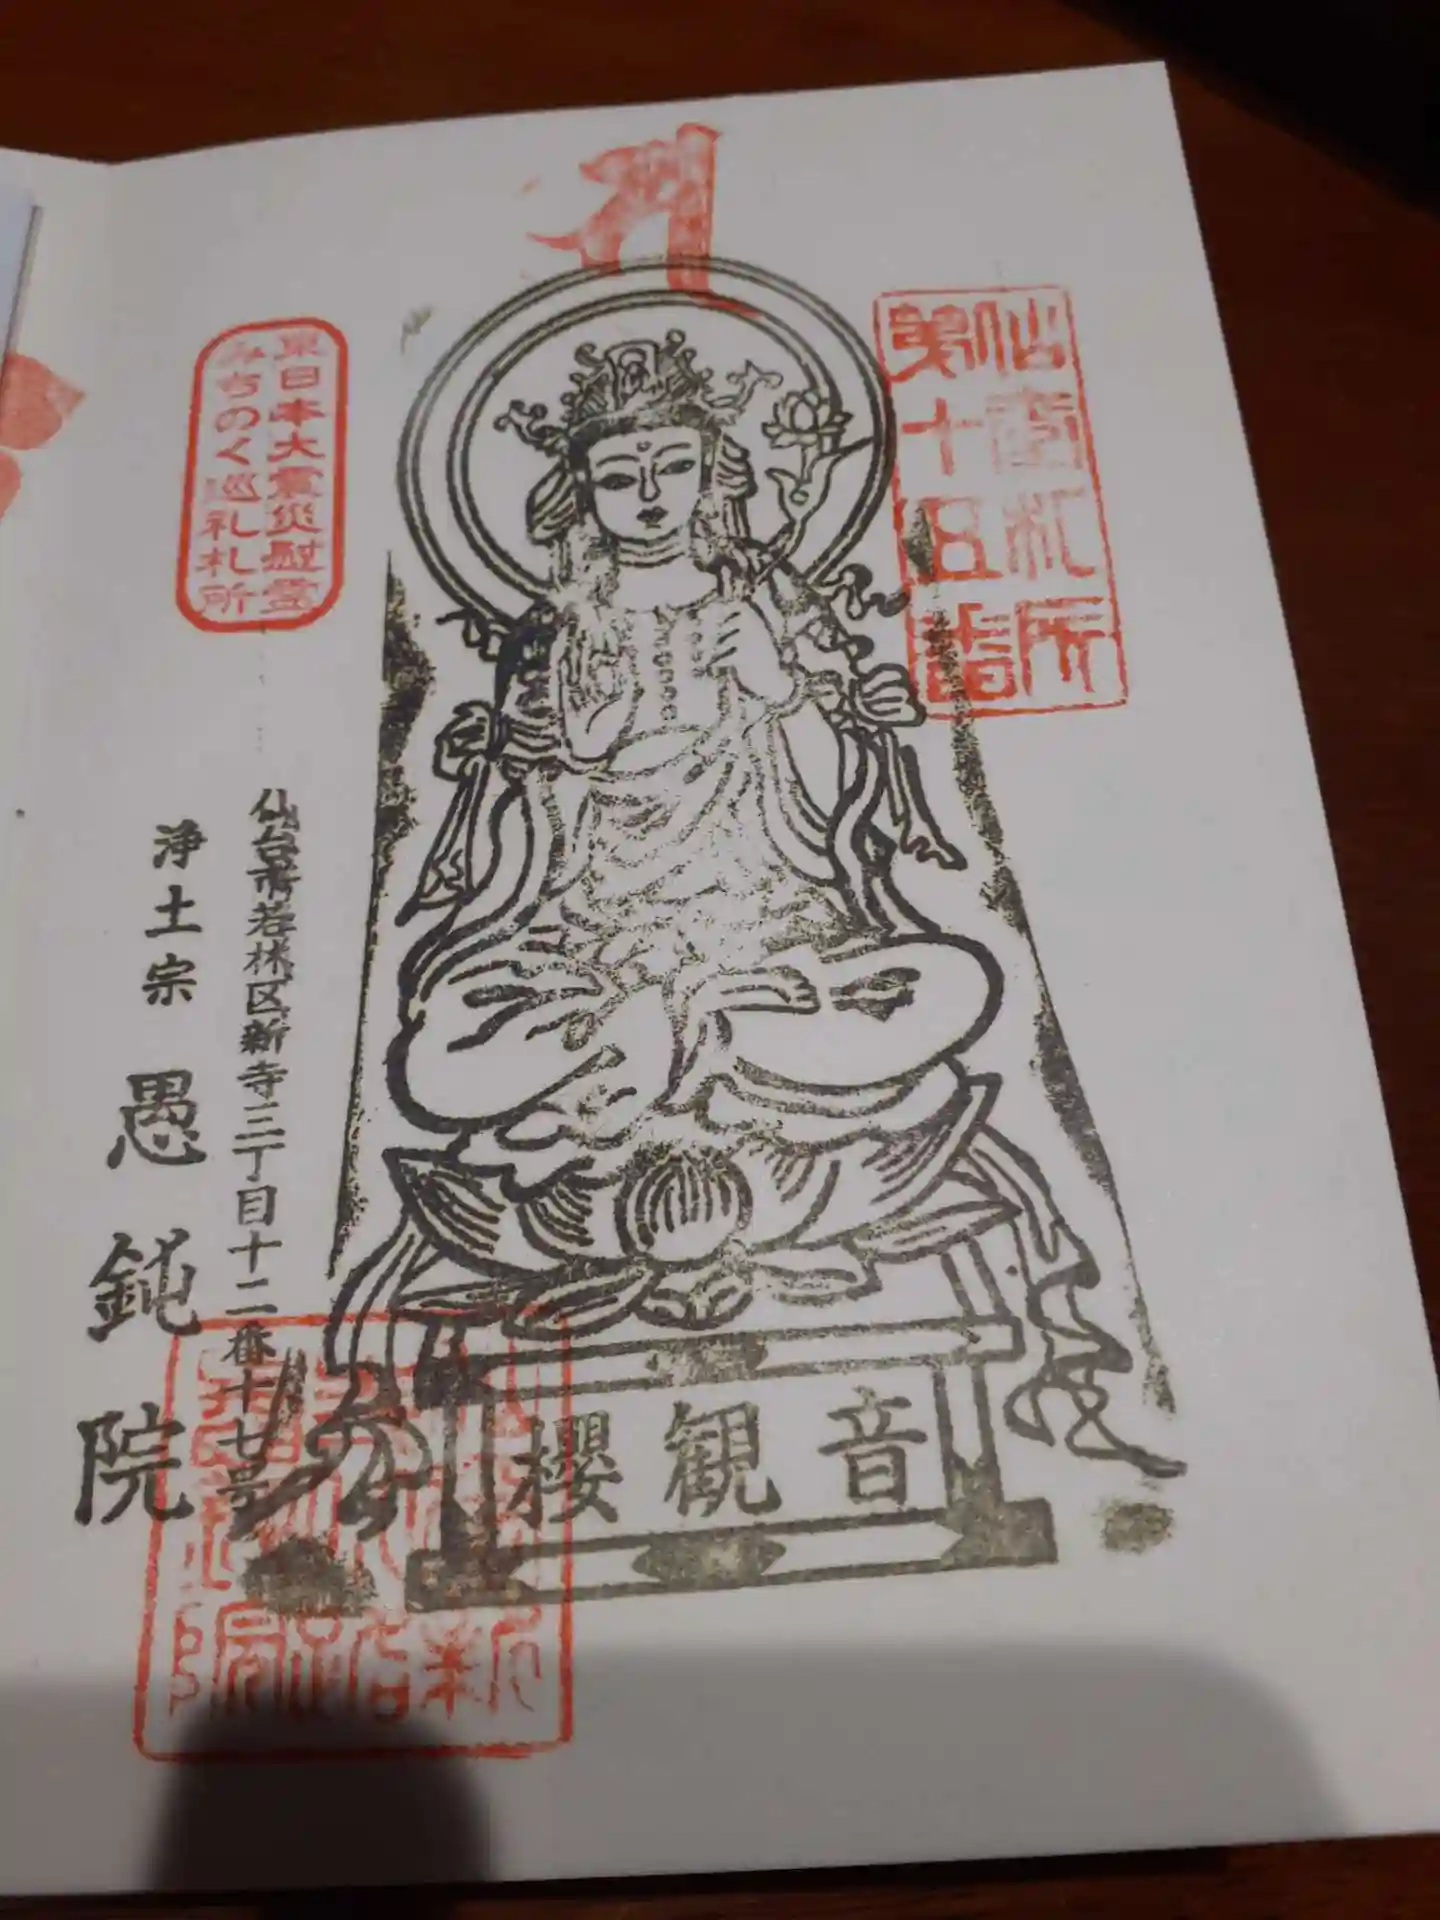 仙台札所
第十五番
音観櫻
東日本大震災慰霊
みちのく巡礼札所
仙台市若林区新寺三丁目十二番十七号
浄土宗 愚鈍院